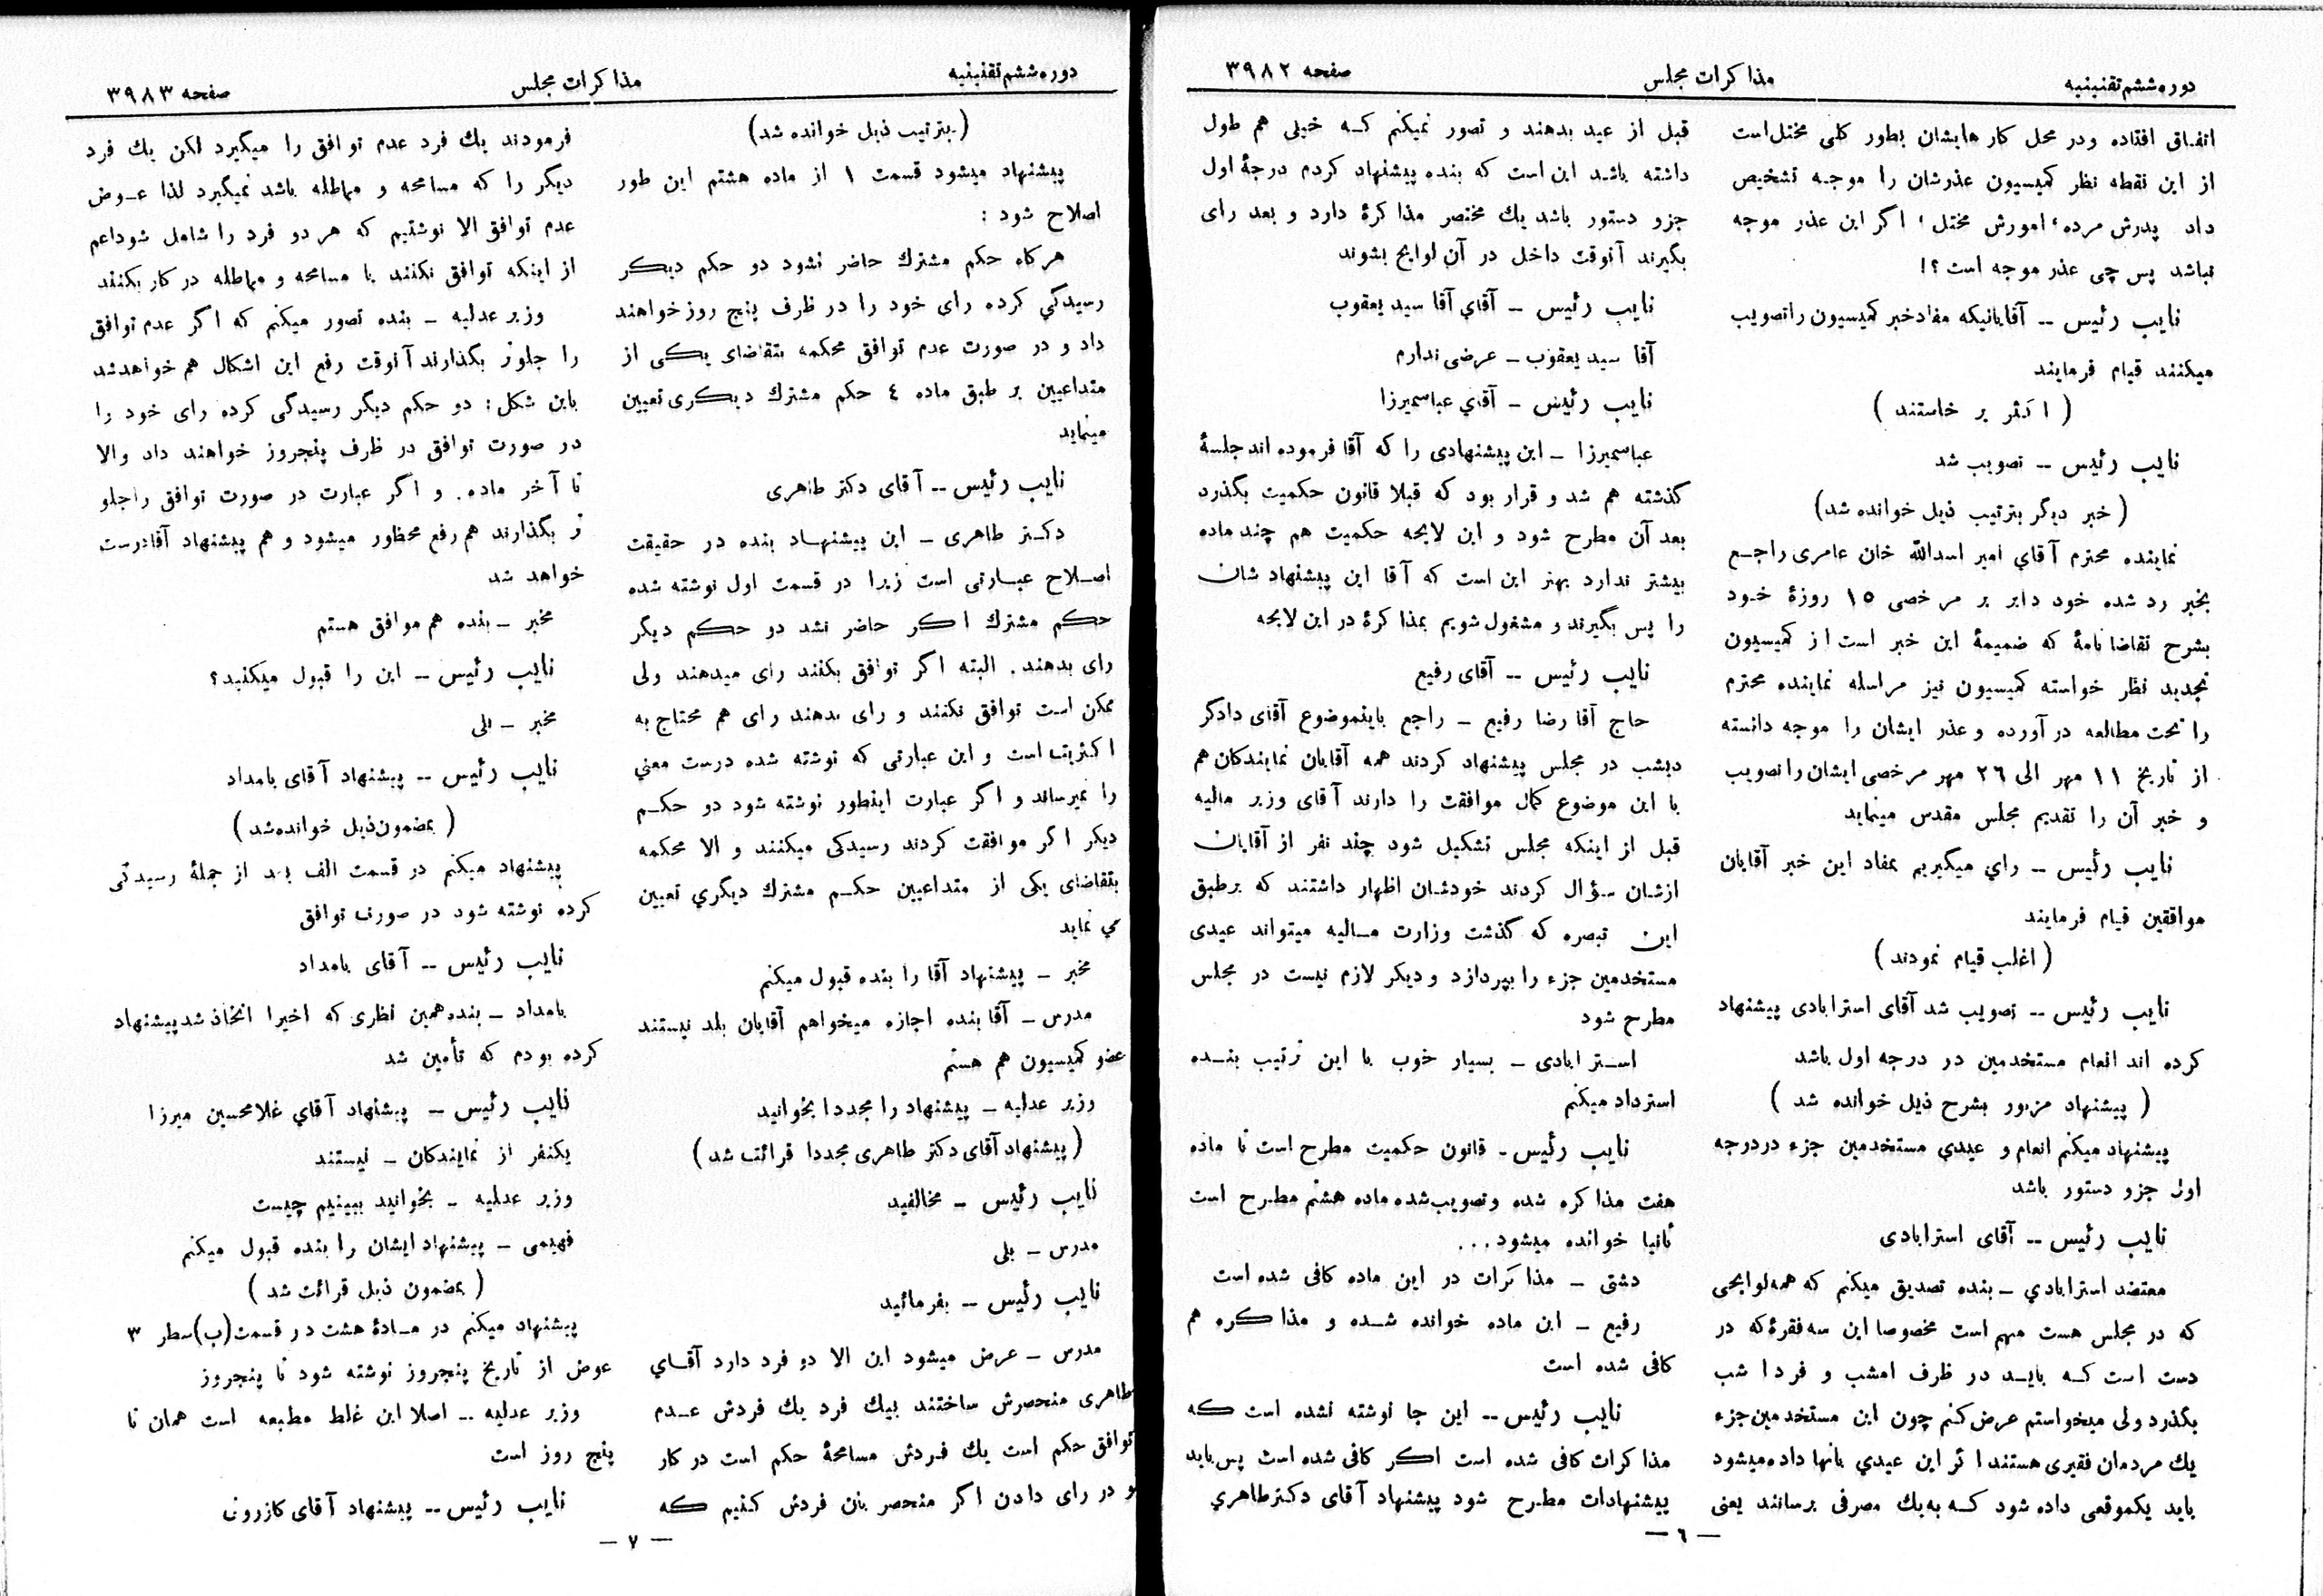 دوره ششم تقنینیه
مذاکرات مجلس
صفحه ۳۹۸۲
اتفاق افتاده و در محل کارهایشان بطور کلی مختل است
از این نقطه نظر کمیسیون عذرشان را موجه تشخیص
داد پدرش مرده، امورش مختل، اگر این عذر موجه
نباشد پس چی عذر موجه است؟!
نایب رئیس -- آقایانیکه مفاد خبر کمیسیون را تصویب
میکنند قیام فرمایند
( اکثر بر خاستند )
نایب رئیس -- تصویب شد
( خبر دیگر بترتیب ذیل خوانده شد)
نماینده محترم آقای امیر اسدالله خان عامری راجع
بخبر رد شده خود دایر بر مرخصی ۱۵ روزهٔ خود
بشرح تقاضا نامهٔ که ضمیمهٔ این خبر است از کمیسیون
تجدید نظر خواسته کمیسیون نیز مراسله نماینده محترم
را تحت مطالعه در آورده و عذر ایشان را موجه دانسته
از تاریخ ۱۱ مهر الی ۲۶ مهر مرخصی ایشان را تصویب
و خبر آن را تقدیم مجلس مقدس مینماید
نایب رئیس -- رای میگیریم بمفاد این خبر آقایان
موافقین قیام فرمایند
( اغلب قیام نمودند )
نایب رئیس -- تصویب شد آقای استرابادی پیشنهاد
کرده اند انعام مستخدمین در درجه اول باشد
( پیشنهاد مزبور بشرح ذیل خوانده شد )
پیشنهاد میکنم انعام و عیدی مستخدمین جزء در درجه
اول جزو دستور باشد
نایب رئیس -- آقای استرابادی
معتضد استرابادی - بنده تصدیق میکنم که همه لوایحی
که در مجلس هست مهم است مخصوصا این سه فقرهٔ که در
دست است که باید در ظرف امشب و فردا شب
بگذرد ولی میخواستم عرض کنم چون این مستخدمین جزء
یك مردمان فقیری هستند اگر این عیدی بانها داده میشود
باید یکموقعی داده شود که به یك مصرفی برسانند یعنی
قبل از عید بدهند و تصور نمیکنم که خیلی هم طول
داشته باشد این است که بنده پیشنهاد کردم درجهٔ اول
جزو دستور باشد یك مختصر مذاکرهٔ دارد و بعد رای
بگیرند آنوقت داخل در آن لوایح بشوند
نایب رئیس -- آقای آقا سید یعقوب
آقا سید یعقوب - عرضی ندارم
نایب رئیس - آقای عباسمیرزا
عباسمیرزا - این پیشنهادی را که آقا فرموده اند جلسهٔ
گذشته هم شد و قرار بود که قبلا قانون حکمیت بگذرد
بعد آن مطرح شود و این لایحه حکمیت هم چند ماده
بیشتر ندارد بهتر این است که آقا این پیشنهاد شان
را پس بگیرند و مشغول شویم بمذاکرهٔ در این لایحه
نایب رئیس -- آقای رفیع
حاج آقا رضا رفیع - راجع باینموضوع آقای دادگر
دیشب در مجلس پیشنهاد کردند همه آقایان نمایندگان هم
با این موضوع کمال موافقت را دارند آقای وزیر مالیه
قبل از اینکه مجلس تشکیل شود چند نفر از آقایان
ازشان سؤال کردند خودشان اظهار داشتند که برطبق
این تبصره که گذشت وزارت مالیه میتواند عیدی
مستخدمین جزء را بپردازد و دیگر لازم نیست در مجلس
مطرح شود
استرابادی - بسیار خوب با این ترتیب بنده
استرداد میکنم
نایب رئیس - قانون حکمیت مطرح است تا ماده
هفت مذاکره شده و تصویب شده ماده هشتم مطرح است
ثانیا خوانده میشود...
دشتی - مذاکرات در این ماده کافی شده است
رفیع - این ماده خوانده شده و مذاکره هم
کافی شده است
نایب رئیس -- این جا نوشته نشده است که
مذاکرات کافی شده است اگر کافی شده است پس باید
پیشنهادات مطرح شود پیشنهاد آقای دکتر طاهری
— ۶ —
دوره ششم تقنینیه
مذاکرات مجلس
صفحه ۳۹۸۳
(بترتیب ذیل خوانده شد)
پیشنهاد میشود قسمت ۱ از ماده هشتم این طور
اصلاح شود :
هرگاه حکم مشترك حاضر نشود دو حکم دیگر
رسیدگی کرده رای خود را در ظرف پنج روز خواهند
داد و در صورت عدم توافق محکمه بتقاضای یکی از
متداعیین بر طبق ماده ٤ حکم مشترك دیگری تعیین
مینماید
نایب رئیس -- آقای دکتر طاهری
دکتر طاهری - این پیشنهاد بنده در حقیقت
اصلاح عبارتی است زیرا در قسمت اول نوشته شده
حکم مشترك اگر حاضر نشد دو حکم دیگر
رای بدهند. البته اگر توافق بکنند رای میدهند ولی
ممکن است توافق نکنند و رای بدهند رای هم محتاج به
اکثریت است و این عبارتی که نوشته شده درست معنی
را نمیرساند و اگر عبارت اینطور نوشته شود دو حکم
دیگر اگر موافقت کردند رسیدگی میکنند و الا محکمه
بتقاضای یکی از متداعیین حکم مشترك دیگری تعیین
می نماید
مخبر - پیشنهاد آقا را بنده قبول میکنم
مدرس - آقا بنده اجازه میخواهم آقایان بلد نیستند
عضو کمیسیون هم هستم
وزیر عدلیه - پیشنهاد را مجددا بخوانید
(پیشنهاد آقای دکتر طاهری مجددا قرائت شد)
نایب رئیس - مخالفید
مدرس - بلی
نایب رئیس -- بفرمائید
مدرس - عرض میشود این الا دو فرد دارد آقای
طاهری منحصرش ساختند بیك فرد یك فردش عدم
توافق حکم است یك فردش مسامحهٔ حکم است در کار
و در رای دادن اگر منحصر بان فردش کنیم که
فرمودند یك فرد عدم توافق را میگیرد لکن یك فرد
دیگر را که مسامحه و مماطله باشد نمیگیرد لذا عوض
عدم توافق الا نوشتیم که هر دو فرد را شامل شود اعم
از اینکه توافق نکنند یا مسامحه و مماطله در کار بکنند
وزیر عدلیه - بنده تصور میکنم که اگر عدم توافق
را جلوتر بگذارند آنوقت رفع این اشکال هم خواهد شد
باین شکل: دو حکم دیگر رسیدگی کرده رای خود را
در صورت توافق در ظرف پنجروز خواهند داد و الا
تا آخر ماده. و اگر عبارت در صورت توافق را جلو
تر بگذارند هم رفع محظور میشود و هم پیشنهاد آقا درست
خواهد شد
مخبر - بنده هم موافق هستم
نایب رئیس -- این را قبول میکنید؟
مخبر - بلی
نایب رئیس -- پیشنهاد آقای بامداد
( بمضمون ذیل خوانده شد )
پیشنهاد میکنم در قسمت الف بعد از جملهٔ رسیدگی
کرده نوشته شود در صورت توافق
نایب رئیس -- آقای بامداد
بامداد - بنده همین نظری که اخیرا اتخاذ شد پیشنهاد
کرده بودم که تأمین شد
نایب رئیس - پیشنهاد آقای غلامحسین میرزا
یکنفر از نمایندگان - نیستند
وزیر عدلیه - بخوانید ببینیم چیست
فهیمی - پیشنهاد ایشان را بنده قبول میکنم
( بمضمون ذیل قرائت شد )
پیشنهاد میکنم در مادهٔ هشت در قسمت (ب) سطر ۳
عوض از تاریخ پنجروز نوشته شود تا پنجروز
وزیر عدلیه -- اصلا این غلط مطبعه است همان تا
پنج روز است
نایب رئیس -- پیشنهاد آقای کازرونی
— ۷ —